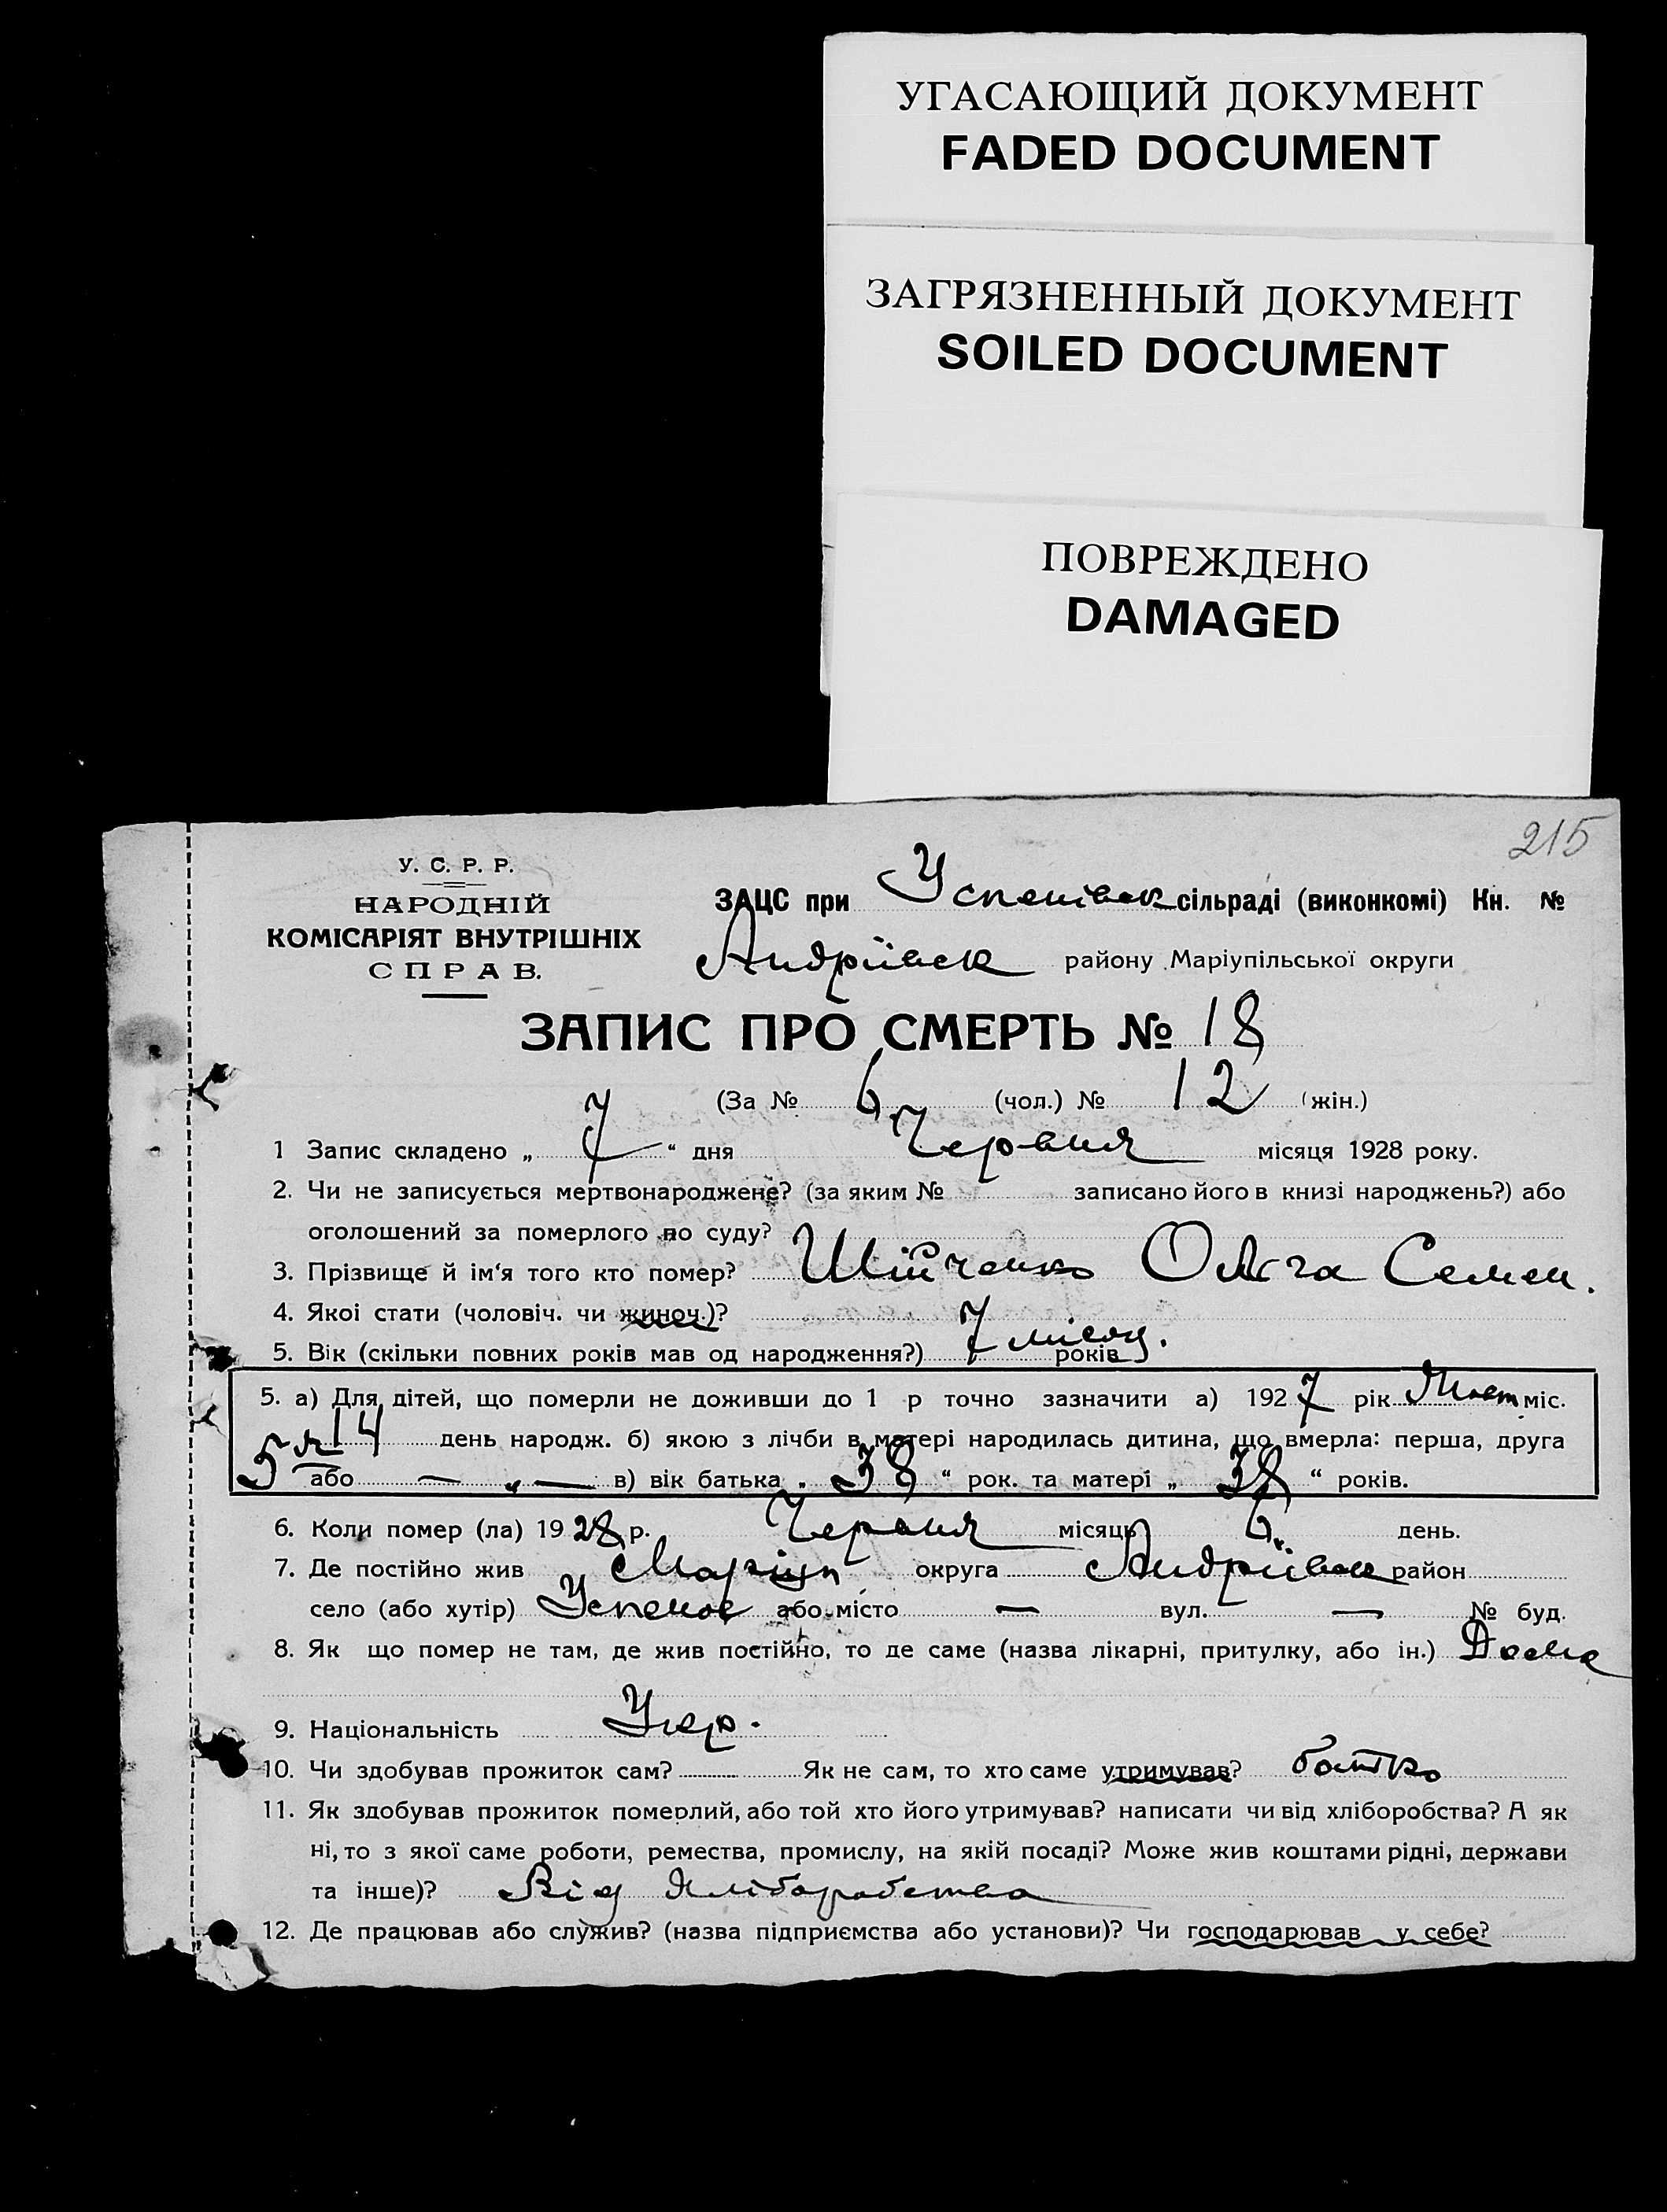 УГАСАЮЩИЙ ДОКУМЕНТ
FADED DOCUMENT
ЗАГРЯЗНЕННЫЙ ДОКУМЕНТ
SOILED DOCUMENT
ПОВРЕЖДЕНО
DAMAGED
215
У. С. Р. Р.
НАРОДНІЙ
КОМІСАРІЯТ ВНУТРІШНІХ
СПРАВ.
ЗАЦС при Успенівск сільраді (виконкомі) Кн. №
Андріівск району Маріупільської округи
ЗАПИС ПРО СМЕРТЬ № 18
(За № 6 (чол.) № 12 (жін.)
1 Запис складено „ 7 “ дня Червня місяця 1928 року.
2. Чи не записується мертвонароджене? (за яким № записано його в книзі народжень?) або
оголошений за померлого по суду?
3. Прізвище й ім‘я того кто помер? Шійченко Ольга Семен.
4. Якої стати (чоловіч. чи жиноч.)?
5. Вік (скільки повних років мав од народження?) 7 місяц. років
5. а) Для дітей, що померли не доживши до 1 р точно зазначити а) 1927 рік міс.
14 день народж. б) якою з лічби в матері народилась дитина, що вмерла: перша, друга
5я або — „ — в) вік батька „ 38 “ рок. та матері „ 38 “ років.
6. Коли помер (ла) 1928 р. Червня місяць 6 день.
7. Де постійно жив Маріуп округа Андріівск район
село (або хутір) Успенов або місто — вул. — № буд.
8. Як що помер не там, де жив постійно, то де саме (назва лікарні, притулку, або ін.) Дома
9. Національність Укр.
10. Чи здобував прожиток сам? Як не сам, то хто саме утримував? батко
11. Як здобував прожиток померлий, або той хто його утримував? написати чи від хліборобства? А як
ні, то з якої саме роботи, ремества, промислу, на якій посаді? Може жив коштами рідні, держави
та інше)? Від Хліборобства
12. Де працював або служив? (назва підприємства або установи)? Чи господарював у себе?